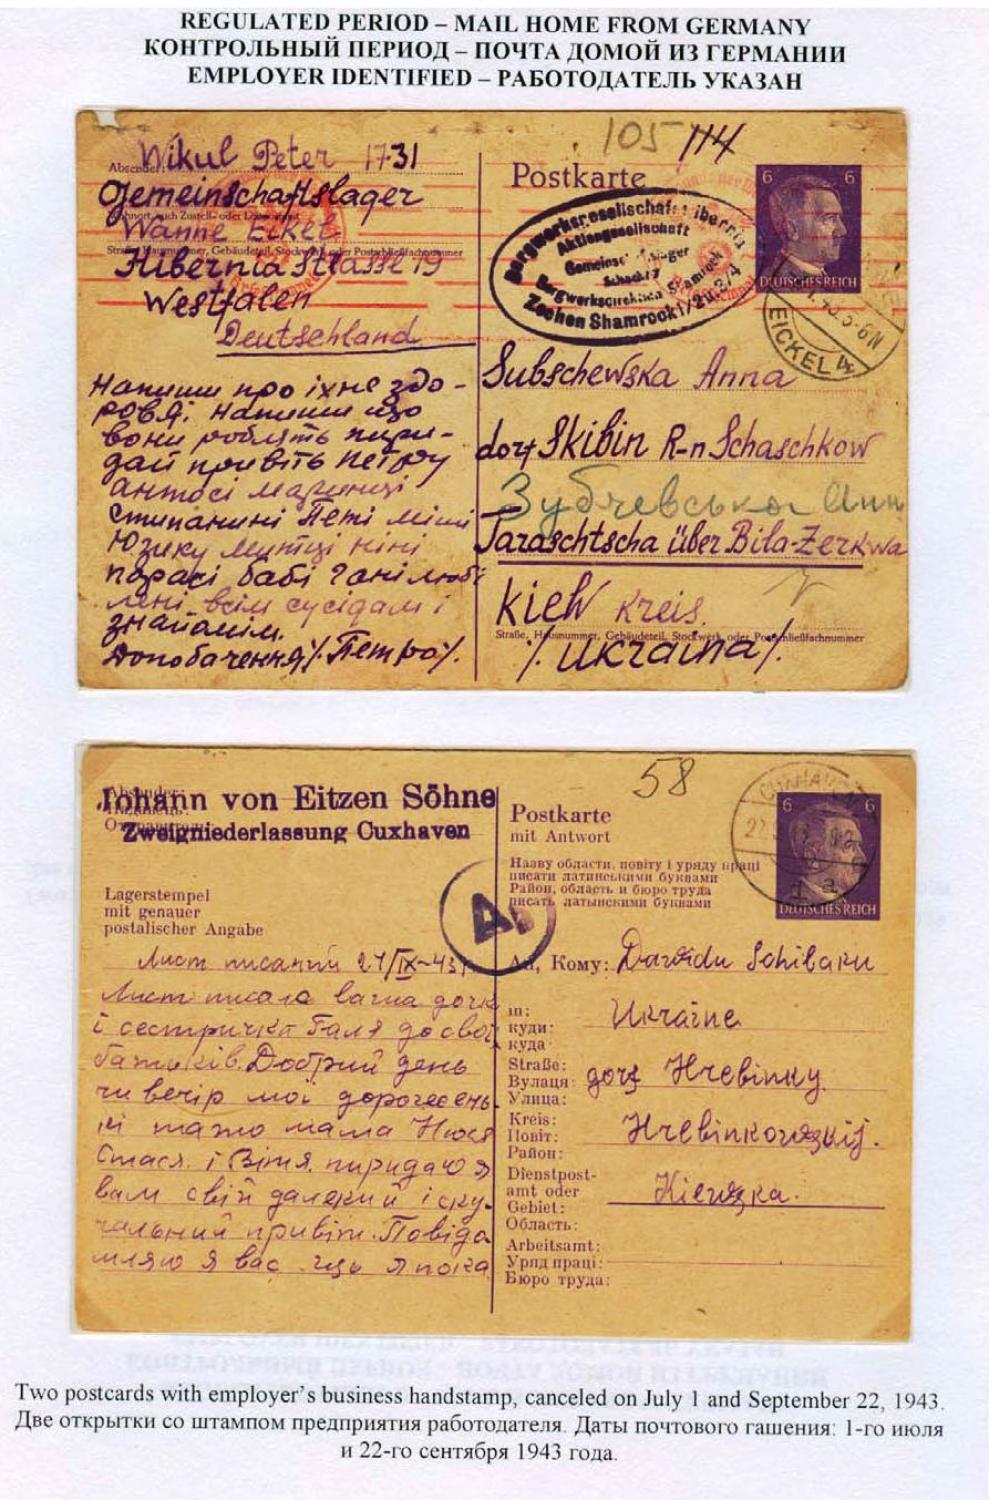 REGULATED PERIOD – MAIL HOME FROM GERMANY
КОНТРОЛЬНЫЙ ПЕРИОД – ПОЧТА ДОМОЙ ИЗ ГЕРМАНИИ
EMPLOYER IDENTIFIED – РАБОТОДАТЕЛЬ УКАЗАН
105 114
Absender: Wikul Peter 1731
Gemeinschaftslager
Wohnort, auch Zustell- oder
Wanne Eikel
Straße, Hausnummer, Gebäudeteil, Stockwerk oder Postschließfachnummer
Hibernia Strasse 19
Westfalen
Deutschland
Напиши про їхнє здо-
ровя. Напиши що
вони роблять пири-
дай привіть Петру
антосі
Петі
Юзику
бабі
всім сусідам і
знайомим.
Допобачення /. Петро /.
Postkarte
6 6
DEUTSCHES REICH
Bergwerksgesellschaft Hibernia
Aktiengesellschaft
Schacht 7
Zechen Shamrock 1/2 u. 3/4
EICKEL 4
Subschewska Anna
dorf Skibin R-n Schaschkow
Зубчевська Анн
Taraschtscha über Bila-Zerkwa
Kiew Kreis.
Straße, Hausnummer, Gebäudeteil, Stockwerk oder Postschließfachnummer
/. Ukraina /.
Johann von Eitzen Söhne
Zweigniederlassung Cuxhaven
Absender:
Lagerstempel
mit genauer
postalischer Angabe
58
Postkarte
mit Antwort
Назву области, повіту і уряду праці
писати латинськими буквами
Район, область и бюро труда
писать латынскими буквами
CUXHAVEN
6 6
DEUTSCHES REICH
Лист писаний 21/IX-43
Лист писала ваша дочка
і сестричка Галя до своїх
батьків. Добрий день
чи вечір мої дорогесень
кі тато мама Нюся
Стася і Вітя. пиридаю я
вам свій далекий і ску-
чальний привіт. Повідо
мляю я вас що я пока
An, Кому: Dawidu Schibaku
in:
куди: Ukraine
куда
Straße:
Вулаця: dorf Hrebinky
Улица:
Kreis:
Повіт: Hrebinkowskij.
Район:
Dienstpost-
amt oder Kiewska.
Gebiet:
Область:
Arbeitsamt:
Уряд праці:
Бюро труда:
Two postcards with employer's business handstamp, canceled on July 1 and September 22, 1943.
Две открытки со штампом предприятия работодателя. Даты почтового гашения: 1-го июля
и 22-го сентября 1943 года.